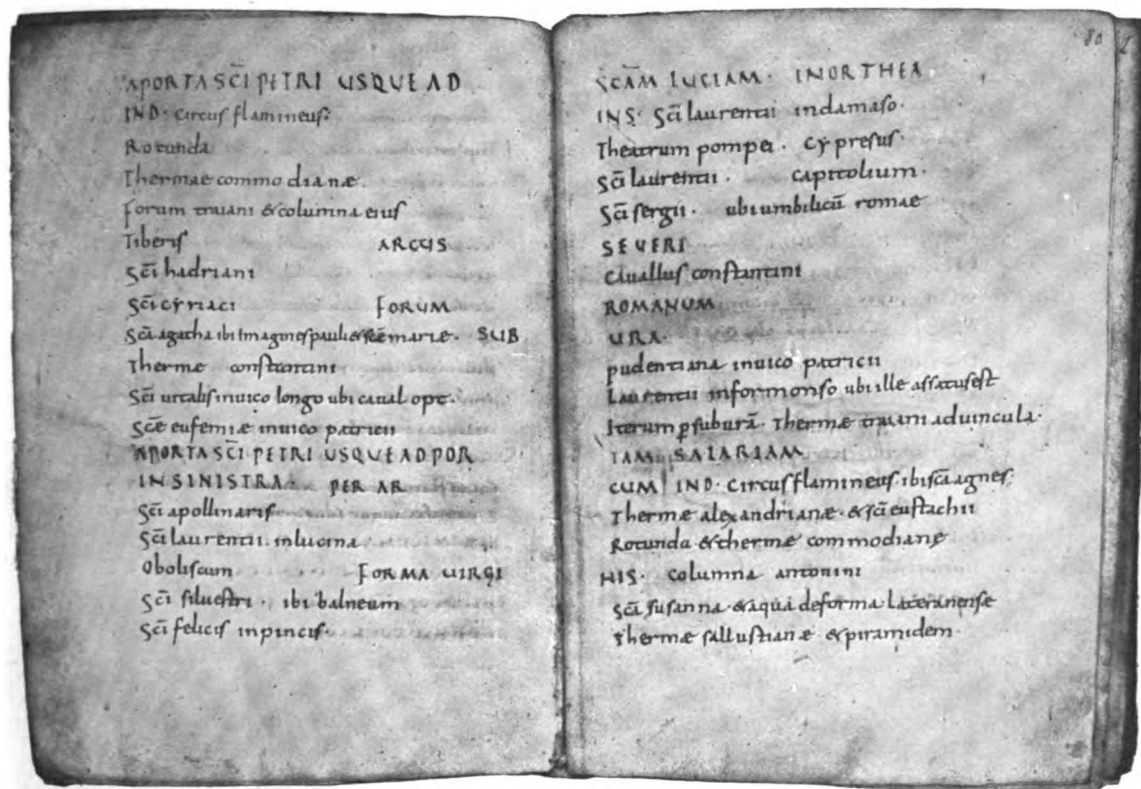 APORTA SC̄I PETRI USQUE AD
IND· Circus flamineus·
Rotunda
Thermae commodianæ
forum traiani & columna eius
Tiberis ARCUS
Sc̄i hadriani
Sc̄i cyriaci FORUM
Sc̄a agatha ibi imagines pauli & sc̄e mariæ· SUB
Thermę constantini
Sc̄i uitalis inuico longo ubi caual opt·
Sc̄e eufemiæ inuico patricii
APORTA SC̄I PETRI USQUE AD POR
IN SINISTRA· PER AR
Sc̄i apollinaris
Sc̄i laurentii inlucina
Oboliscum FORMA UIRGI
Sc̄i siluestri· ibi balneum
Sc̄i felicis inpincis·
80
SC̄AM LUCIAM· INORTHEA
INS· Sc̄i laurentii indamaso·
Theatrum pompei· Cypresus·
Sc̄i laurentii· capitolium·
Sc̄i sergii· ubi umbilicū romae
SEUERI
Cauallus constantini
ROMANUM
URA·
pudentiana inuico patricii
Laurentii informonso ubi ille assatus est
Iterum ꝑ suburā· Thermæ traiani aduincula·
TAM SALARIAM
CUM IND· Circus flamineus· ibi sc̄a agnes·
Thermæ alexandrianæ· & sc̄i eustachii
Rotunda & thermę commodianę
NIS· Columna antonini
Sc̄a susanna· & aqua deforma lateranense
Thermæ sallustianæ & piramidem·